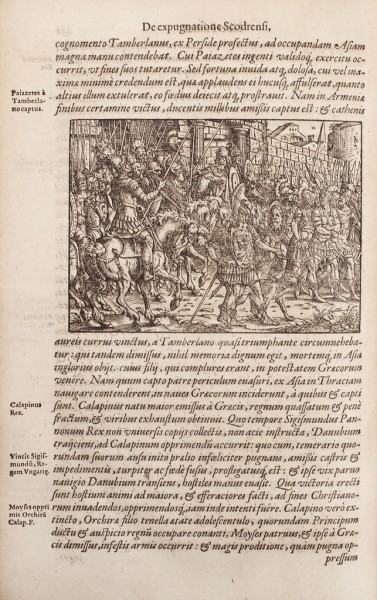 De expugnatione Scodrensi,
cognomento Tamberlanus, ex Perside profectus, ad occupandam Asiam
magna manu contendebat. Cui Paiazetes ingenti validoq; exercitu oc-
currit, vt fines suos tutaretur. Sed fortuna inuida atq; dolosa, cui vel ma-
xime minime credendum est, qua applaudens ei hucusq; affulserat, quanto
altius illum extulerat, eo fœdius deiecit atq; prostrauit. Nam in Armeniæ
finibus certamine victus, ducentis millibus amissis captus est: & cathenis
Paiazetes à
Tamberla-
no captus.
aureis currui vinctus, a Tamberlano quasi triumphante circumueheba-
tur: qui tandem dimissus, nihil memoria dignum egit, mortemq; in Asia
inglorius obijt. cuius filij, qui complures erant, in potestatem Græcorum
venêre. Nam quum capto patre periculum euasissent, ex Asia in Thraciam
nauigare contenderent, in naues Græcorum inciderunt, à quibus & capti
sunt. Calapinus natu maior emissus à Græcis, regnum quassatum & penè
fractum, & viribus exhaustum obtinuit. Quo tempore Sigismundus Pan-
nonum Rex non vniuersis copijs collectis, non acie instructa, Danubium
traijciens, ad Calapinum opprimendū accurrit: quo cum, temerario quo-
rundam suorum ausu inito prœlio infœliciter pugnans, amissis castris &
impedimentis, turpiter ac fœdè fusus, profligatusq; est: & ipse vix paruo
nauigio Danubium transiens, hostiles manus euasit. Qua victoria erecti
sunt hostium animi ad maiora, & efferaciores facti, ad fines Christiano-
rum inuadendos, opprimendosq; iam inde intenti fuêre. Calapino verò ex-
tincto, Orchira filio tenella ætate adolescentulo, quorundam Principum
ductu & auspicio regnū occupare conanti, Moyses patruus, & ipse à Græ-
cis dimissus, infestis armis occurrit: & magis proditione, quàm pugna op-
pressum
Calapinus
Rex.
Vincit Sigis-
mundū, Re-
gem Vngarię.
Moyses oppri
mit Orchirā
Calap. F.